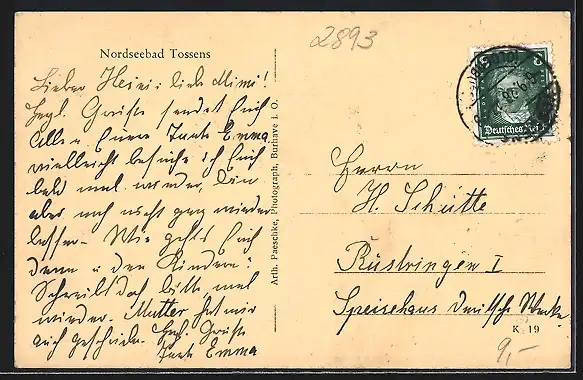 2893
Nordseebad Tossens
Lieber Heini u. liebe Mimi!
Herzl. Grüße sendet Euch
Allen Eure Tante Emma
vielleicht besuche ich Euch
bald mal wieder, bin
aber noch nicht ganz wieder
besser. Wie gehts Euch
denn u. den Kindern?
Schreibt doch bitte mal
wieder. Mutter hat mir
auch geschrieben. Herzl. Grüße
Tante Emma
Arth. Paeschke, Photograph, Burhave i. O.
Deutsches Reich
Herrn
H. Schütte
Rüstringen I
Speisehaus Deutsche Werke
K 19
9,-